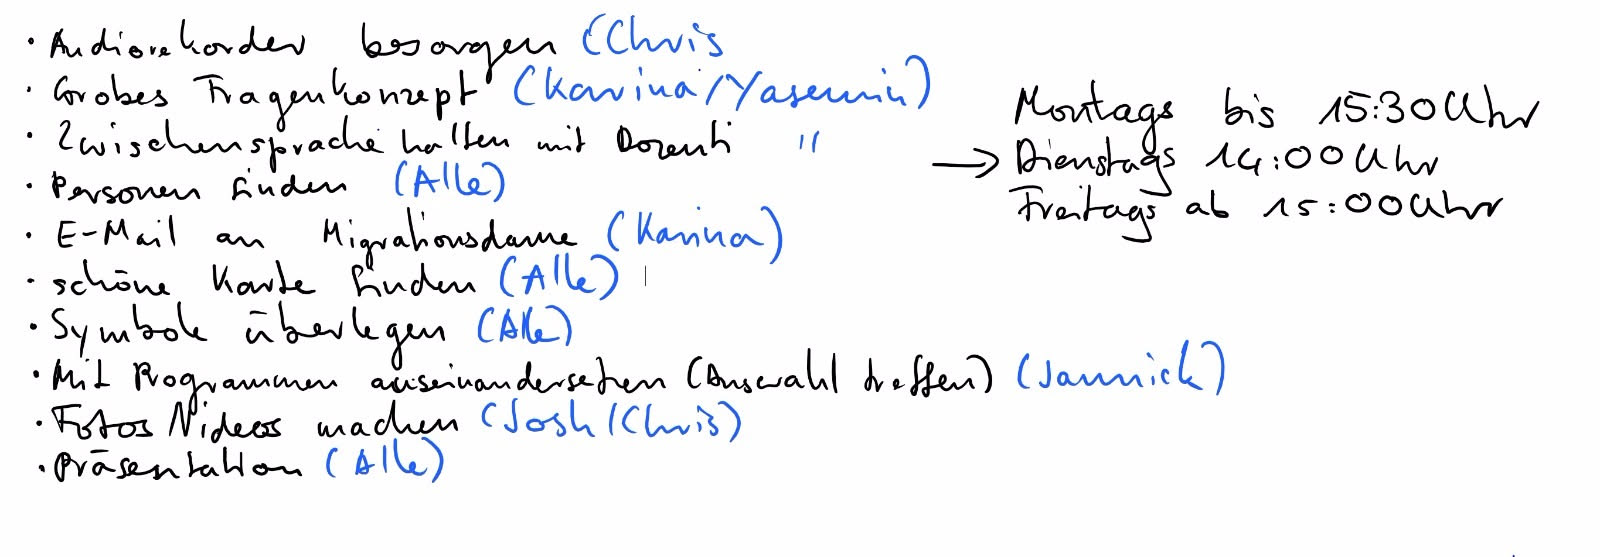 · Audiorekorder besorgen (Chris
· Grobes Fragenkonzept (Karina/Yasemin)
· Zwischensprache halten mit Dozenti "
· Personen finden (Alle)
· E-Mail an Migrationsdame (Karina)
· schöne Karte finden (Alle)
· Symbole überlegen (Alle)
· Mit Programmen auseinandersetzen (Auswahl treffen) (Jannick)
· Fotos/Videos machen (Josh/Chris)
· Präsentation (Alle)
Montags bis 15:30 Uhr
→ Dienstags 14:00 Uhr
Freitags ab 15:00 Uhr